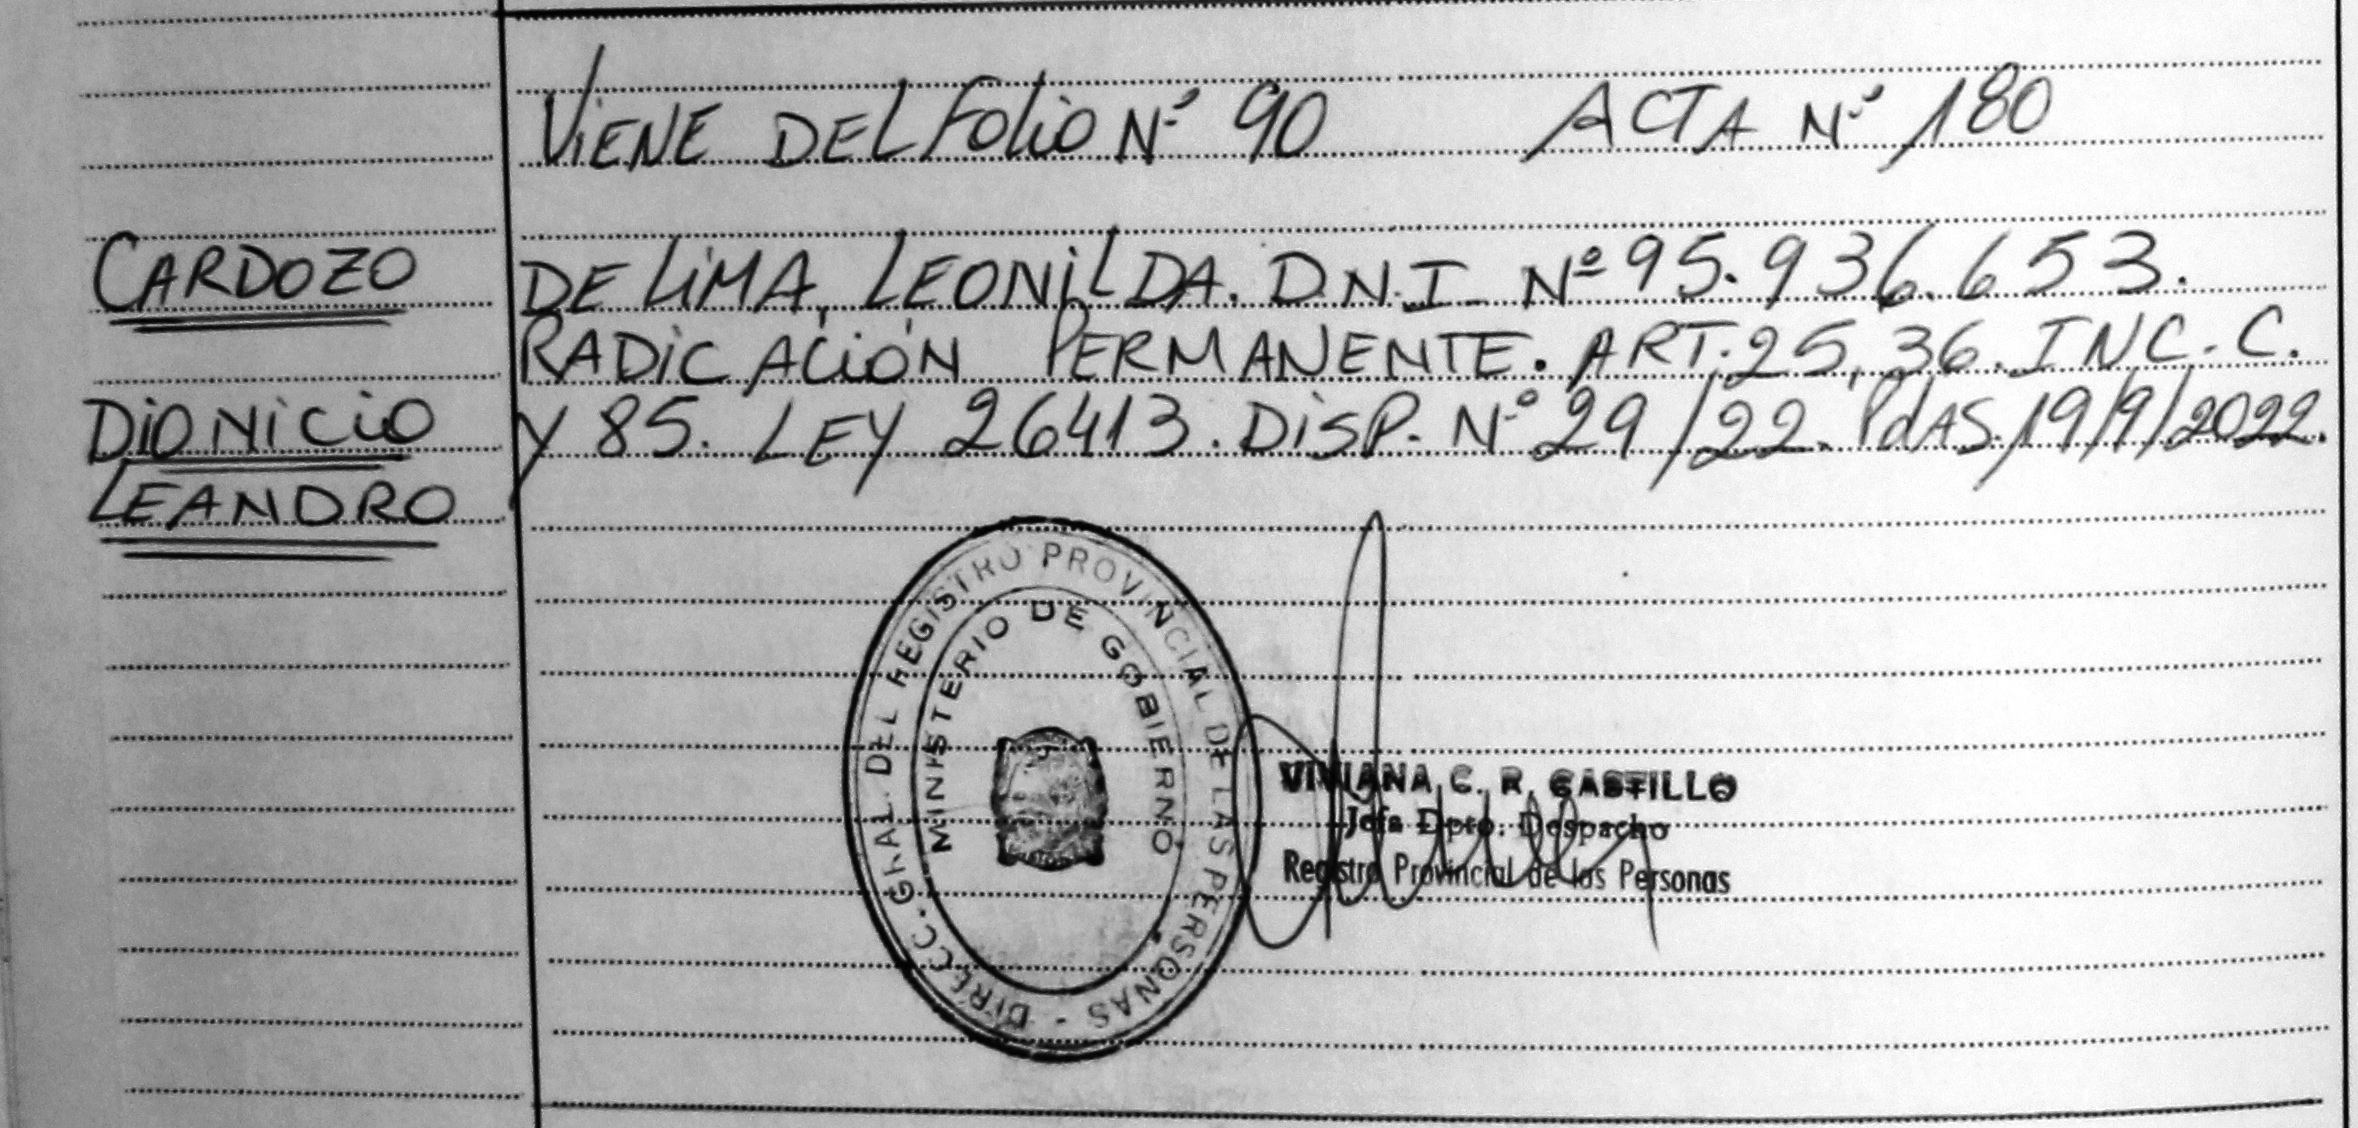 VIENE DEL FOLIO Nº 90 ACTA Nº 180
CARDOZO
DIONICIO
LEANDRO
DE LIMA, LEONILDA. D.N.I. Nº 95.936.653.
RADICACIÓN PERMANENTE. ART. 25, 36. INC. C.
Y 85. LEY 26413. DISP. Nº 29/22. PdAS. 19/9/2022.
DIRECC. GRAL. DEL REGISTRO PROVINCIAL DE LAS PERSONAS -
MINISTERIO DE GOBIERNO
VIVIANA C. R. CASTILLO
Jefa Dpto. Despacho
Registro Provincial de las Personas